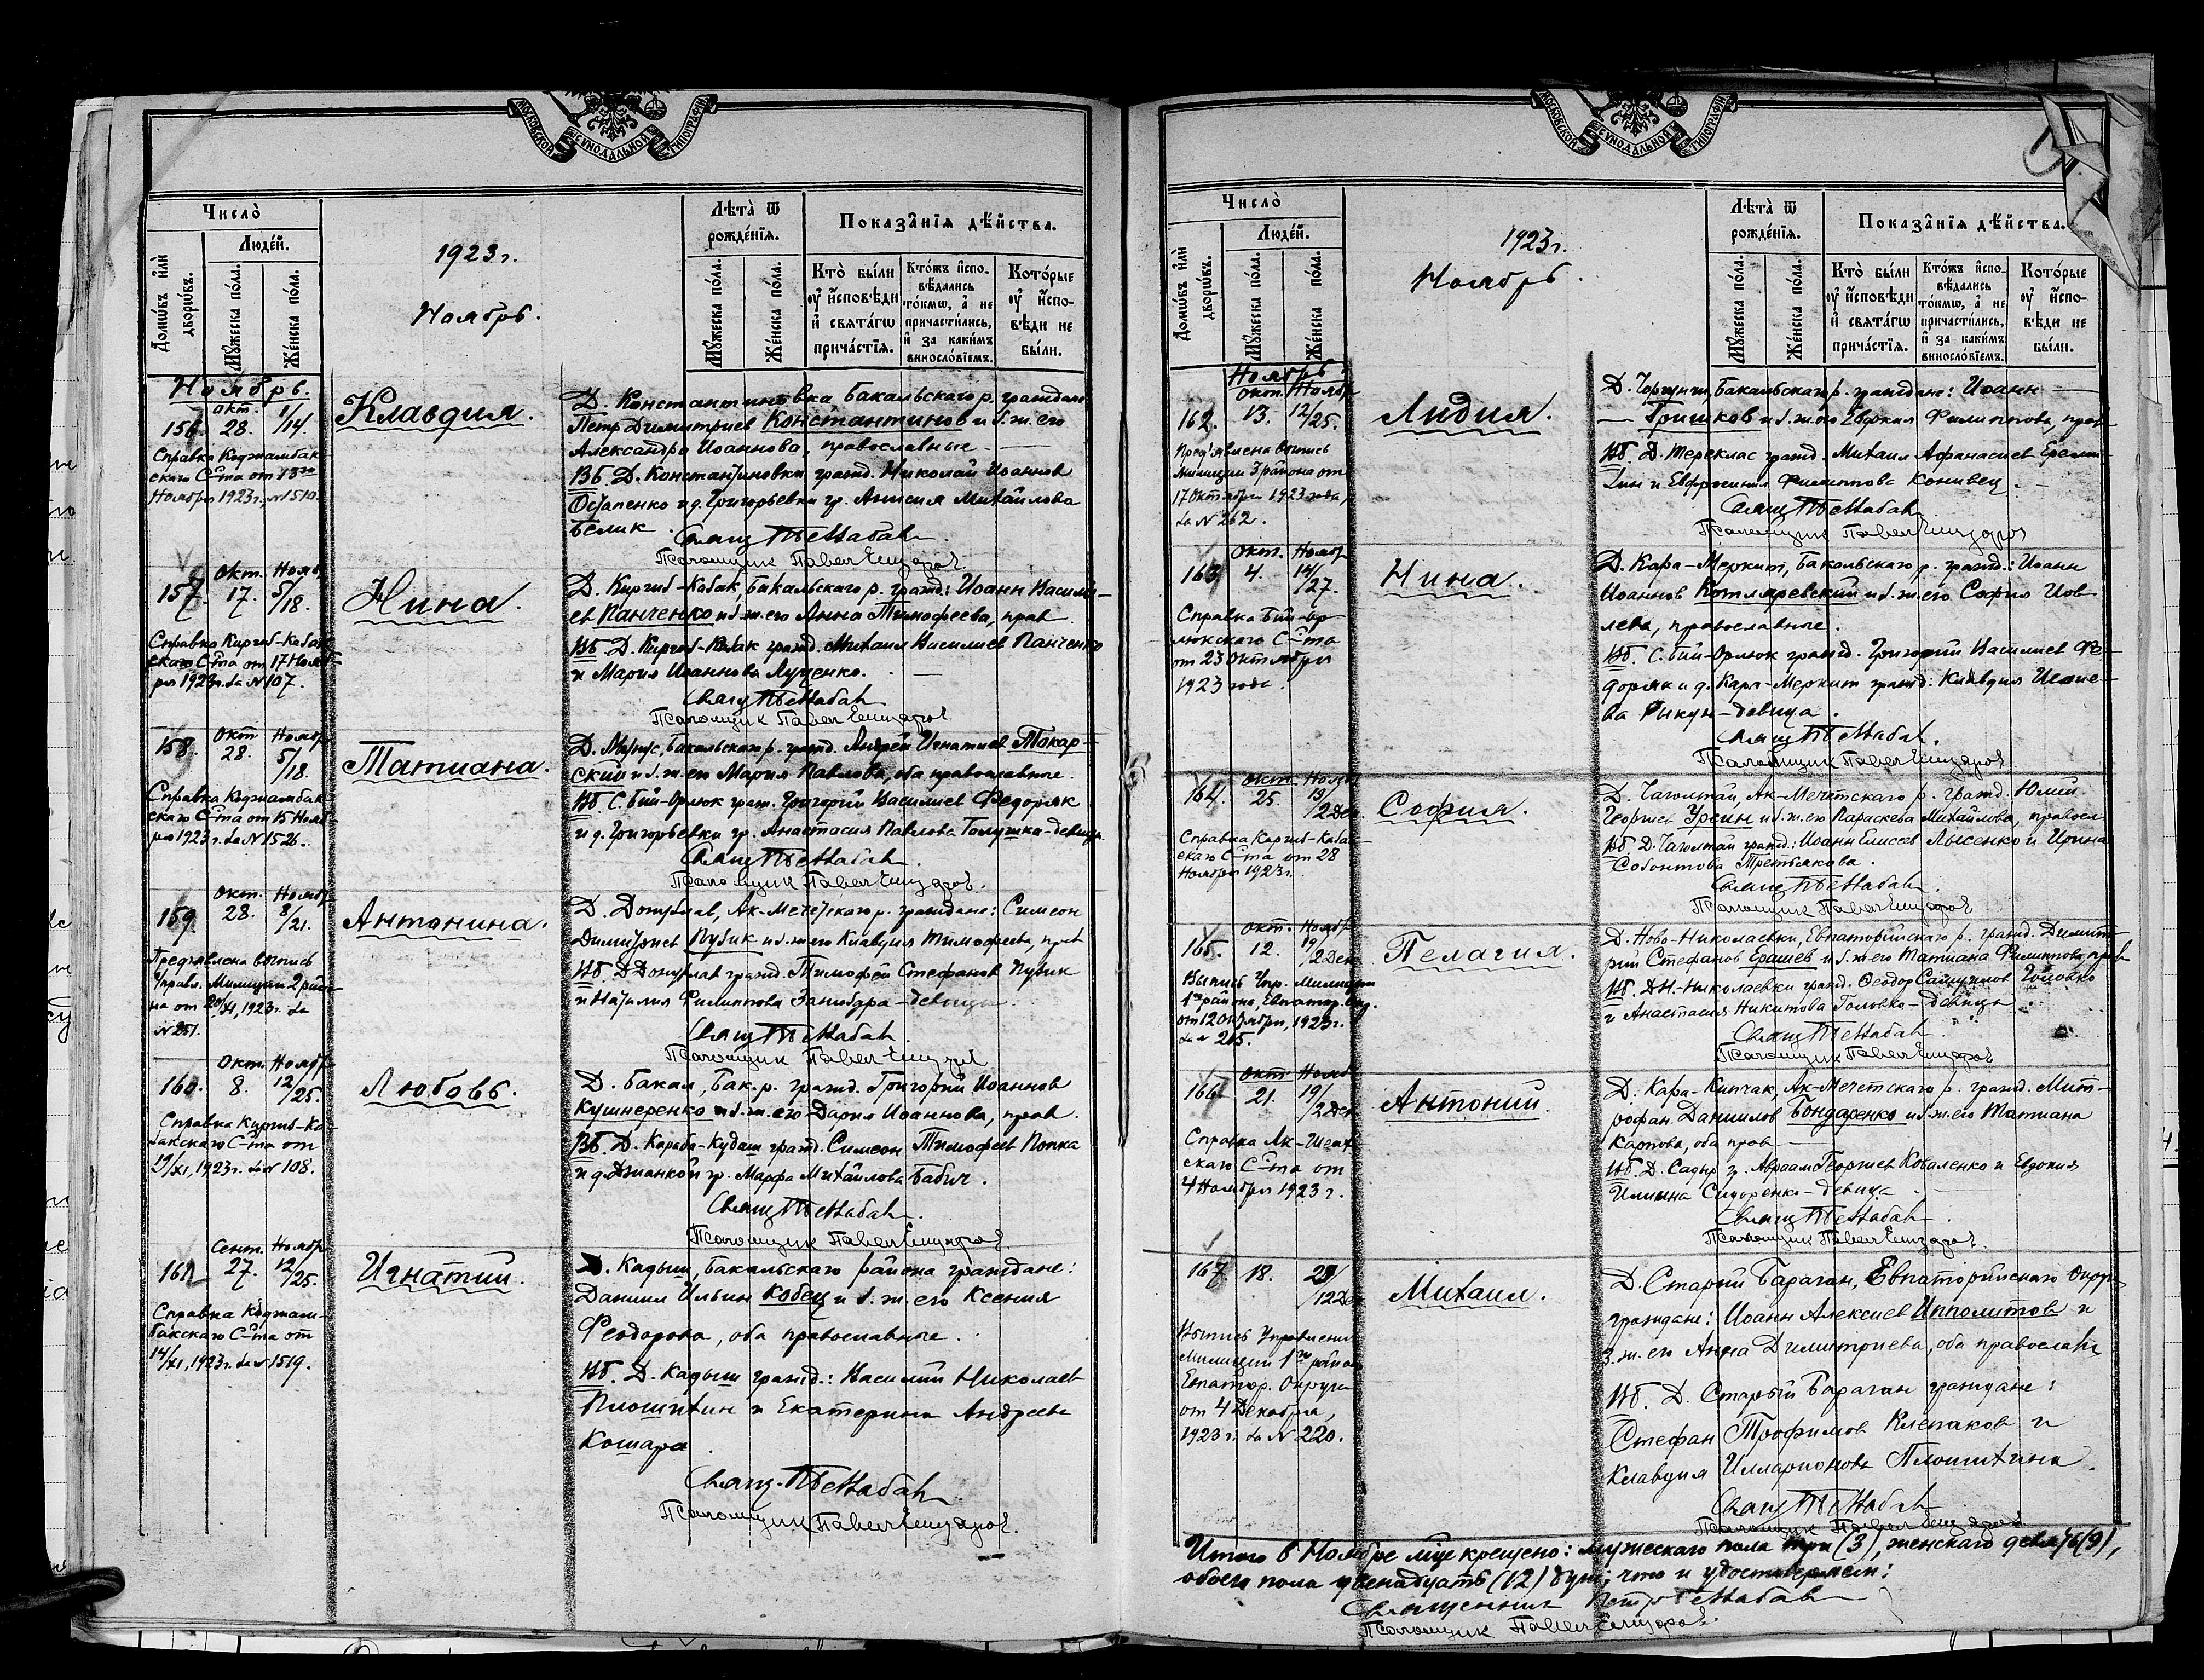 МОСКОВСКОЙ СѴНОДАЛЬНОЙ ТИПОГРАФІИ
Число̀
Людей.
Домѡвъ и҆лѝ дворѡвъ.
Мꙋ́жеска по́ла.
Же́нска по́ла.
1923 г.
Ноябрь.
Лѣта̀ ѿ рожде́нїѧ.
Мꙋ́жеска по́ла.
Же́нска по́ла.
Показа̑нїѧ дѣ́йства.
Кто̀ бы́ли
ᲂу҆ и҆сповѣди
и҆ свѧта́гѡ
прича́стїѧ.
Кто́жъ и҆спо-
вѣ́дались
то́кмѡ, а҆ не
причасти́лись,
и҆ за каки́мъ
винослові́емъ.
Кото́рые
ᲂу҆ и҆спо-
вѣди не
бы́ли.
Ноябрь.
156. Окт. 28. 1/14
Справка Коджамбак-
скаго С-та от 13го
Ноября 1923 г., № 1510.
Клавдия.
Д. Константиновка Бакальскаго р. граждане
Петр Димитриев Константинов и з. ж. его
Александра Иоаннова, православные.
Вб. Д. Константиновки гражд. Николай Иоаннов
Остапенко и д. Григорьевки гр. Анисия Михайлова
Белик.
Свящ. П. Бемабаh
Псаломщик Павел
157. Окт. 17. Ноябр 5/18.
Справка Киргиз-Кабак-
скаго С-та от 17 Нояб-
ря 1923 г. за № 107.
Нина.
Д. Киргиз-Кабак, Бакальскаго р. гражд: Иоанн Василь-
ев Панченко и з. ж. его Анна Тимофеева, прав.
Вб. Д. Киргиз-Кабак гражд. Михаил Василиев Панченко
и Мария Иоаннова Луценко.
Свящ.
Псаломщик Павел
158. Окт 28. Ноябр 5/18.
Справка Коджамбак-
скаго С-та от 15 Нояб-
ря 1923 г. за № 1526.
Татиана.
Д. Мунус, Бакальскаго р. гражд. Андрей Игнатиев Токар-
ский и з. ж. его Мария Павлова, оба православные.
Вб. С. Бий-Орлюк граж. Григорий Василиев Федоряк
и д. Григорьевки гр. Анастасия Павлова Галушка-девица.
Свящ.
Псаломщик Павел
159. Окт. 28. Ноябр 8/21.
Предъявлена выпись
Управл. Милиции 2 райо-
на от 20/XI, 1923 г. за
№ 251.
Антонина.
Д. Донузлав, Ак-Мечетскаго р. граждане: Симеон
Димитриев Пузик и з. ж. его Клавдия Тимофеева, прав
Вб. Д. Донузлав гражд. Тимофей Стефанов Пузик
и Наталия Филиппова -девица.
Свящ.
Псаломщик Павел
160. Окт. 8. Ноябр 12/25.
Справка Киргиз-Ка-
бакскаго С-та от
19/XI, 1923 г. за № 108.
Любовь.
Д. Бакал, Бак. р. гражд. Григорий Иоаннов
Кушнеренко и з. ж. его Дария Иоаннова, прав.
Вб. Д. Карабо-Кудаш гражд. Симеон Тимофеев Попка
и д. Джанкой гр. Марфа Михайлова Бабич.
Свящ.
Псаломщик Павел
161. Сент. 27. Ноябр 12/25.
Справка Коджам-
бакскаго С-та от
14/XI, 1923 г. за № 1519.
Игнатий.
Д. Кадыш, Бакальскаго района граждане:
Даниил Ильин Кобец и з. ж. его Ксения
Феодорова, оба православные.
Вб. Д. Кадыш гражд.: Василий Николаев
Плошихин и Екатерина Андреева
Кошара.
Свящ.
Псаломщик Павел
МОСКОВСКОЙ СѴНОДАЛЬНОЙ ТИПОГРАФІИ
Число̀
Людей.
Домѡвъ и҆лѝ дворѡвъ.
Мꙋ́жеска по́ла.
Же́нска по́ла.
1923 г.
Ноябрь.
Лѣта̀ ѿ рожде́нїѧ.
Мꙋ́жеска по́ла.
Же́нска по́ла.
Показа̑нїѧ дѣ́йства.
Кто̀ бы́ли
ᲂу҆ и҆сповѣди
и҆ свѧта́гѡ
прича́стїѧ.
Кто́жъ и҆спо-
вѣ́дались
то́кмѡ, а҆ не
причасти́лись,
и҆ за каки́мъ
винослові́емъ.
Кото́рые
ᲂу҆ и҆спо-
вѣди не
бы́ли.
Ноябрь.
162. Окт. 13. Ноябр 12/25.
Предъявлена выпись
милиции 3 района от
17 Октября 1923 года,
за № 262.
Лидия.
Д. Бакальскаго р. граждане: Иоанн
Гришков и з. ж. его Евдокия Филиппова, прав
Вб. Д. Тереклас гражд. Михаил Афанасиев
и Евфросиния Филиппова Конивец.
Свящ.
Псаломщик Павел
163. Окт. 4. Ноябр 14/27.
Справка Бий-Ор-
люкскаго С-та
от 23 Октября
1923 года.
Нина.
Д. Кара-Меркит, Бакальскаго р. гражд.: Иоанн
Иоаннов Котляревский и з. ж. его София Иов
лева, православные.
Вб. С. Бий-Орлюк гражд. Григорий Василиев Фе-
доряк и д. Кара-Меркит гражд: Клавдия
Рыкун-девица.
Свящ.
Псаломщик Павел
164. Окт. 25. Ноябр 19/2 Дек.
Справка Киргиз-Каба-
скаго С-та от 28
Ноября 1923 г.
София.
Д. Чаголтай, Ак-Мечетскаго р. гражд. Юлий
Георгиев Урсин и з. ж. его Параскева Михайлова, правосл
Вб. Д. Чаголтай гражд.: Иоанн Елисеев Лысенко и Ирина
Созонтова Третьякова.
Свящ.
Псаломщик Павел
165. Окт. 12. Ноябр 19/2 Дек.
Выпись Упр. Милиции
1го района, Евпатор. Окр.
от 12 Октября, 1923 г.
за № 265.
Пелагия.
Д. Ново-Николаевки, Евпаторийскаго р. гражд. Димит-
рий Стефанов Ерашев и з. ж. его Татиана Филиппова, прав
Вб. Д. Н.-Николаевки гражд. Феодор Самуилов Головко
и Анастасия Никитова Головко-девица.
Свящ.
Псаломщик Павел
166. Окт 21. Нояб. 19/2 Дек
Справка Ак-
скаго С-та от
4 Ноября 1923 г.
Антоний.
Д. Кара-Кипчак, Ак-Мечетскаго р. гражд. Мит-
рофан Даниилов Бондаренко и з. ж. его Татиана
Карпова, оба прав
Вб. Д. Садыр гр. Авраам Георгиев Коваленко и Евдокия
Илиина Сидоренко-девица.
Свящ.
Псаломщик Павел
167. 18. 29/12 Дек
Выпись Управления
Милиции 1го района
Евпатор. Округа
от 4 Декабря,
1923 г. за № 220.
Михаил.
Д. Старый Бараган, Евпаторийскаго Округа
граждане: Иоанн Алексиев Ипполитов и
з. ж. его Анна Димитриева, оба православн
Вб. Д. Старый Бараган граждане:
Стефан Трофимов Клепаков и
Клавдия Илларионова Плошихина.
Свящ.
Псаломщик Павел
Итого в Ноябре м-це крещено: мужескаго пола три (3), женскаго девять (9),
обоего пола двенадцать (12) душ; что и удостоверяем:
Священник Петр
Псаломщик Павел